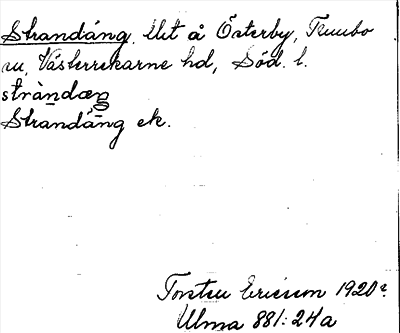 Strandäng. Utt å Österby, Tumbo
sn, Västerrekarne hd, Söd. l.
stràndæŋ
Strandäng ek.
Torsten Ericsson 1920
Ulma 881:24a